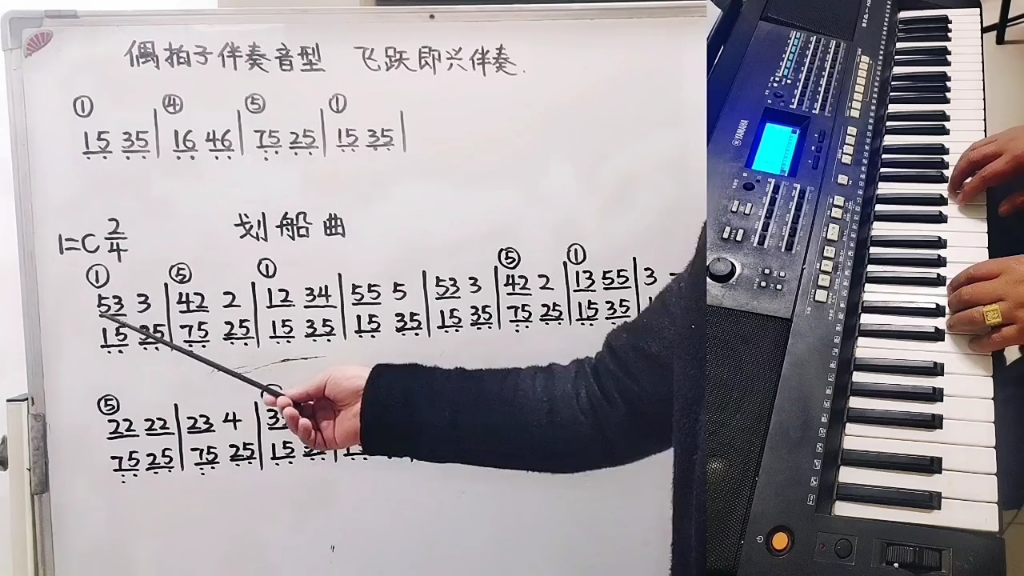 偶拍子伴奏音型 飞跃即兴伴奏.
① ④ ⑤ ①
15 35 | 16 46 | 75 25 | 15 35 |
划船曲
1=C 2/4
① ⑤ ① ⑤ ①
53 3 | 42 2 | 12 34 | 55 5 | 53 3 | 42 2 | 13 55 | 3 -
15 35 | 75 25 | 15 35 | 15 35 | 15 35 | 75 25 | 15 35 |
⑤
22 22 | 23 4 |
75 25 | 75 25 | 15
YAMAHA